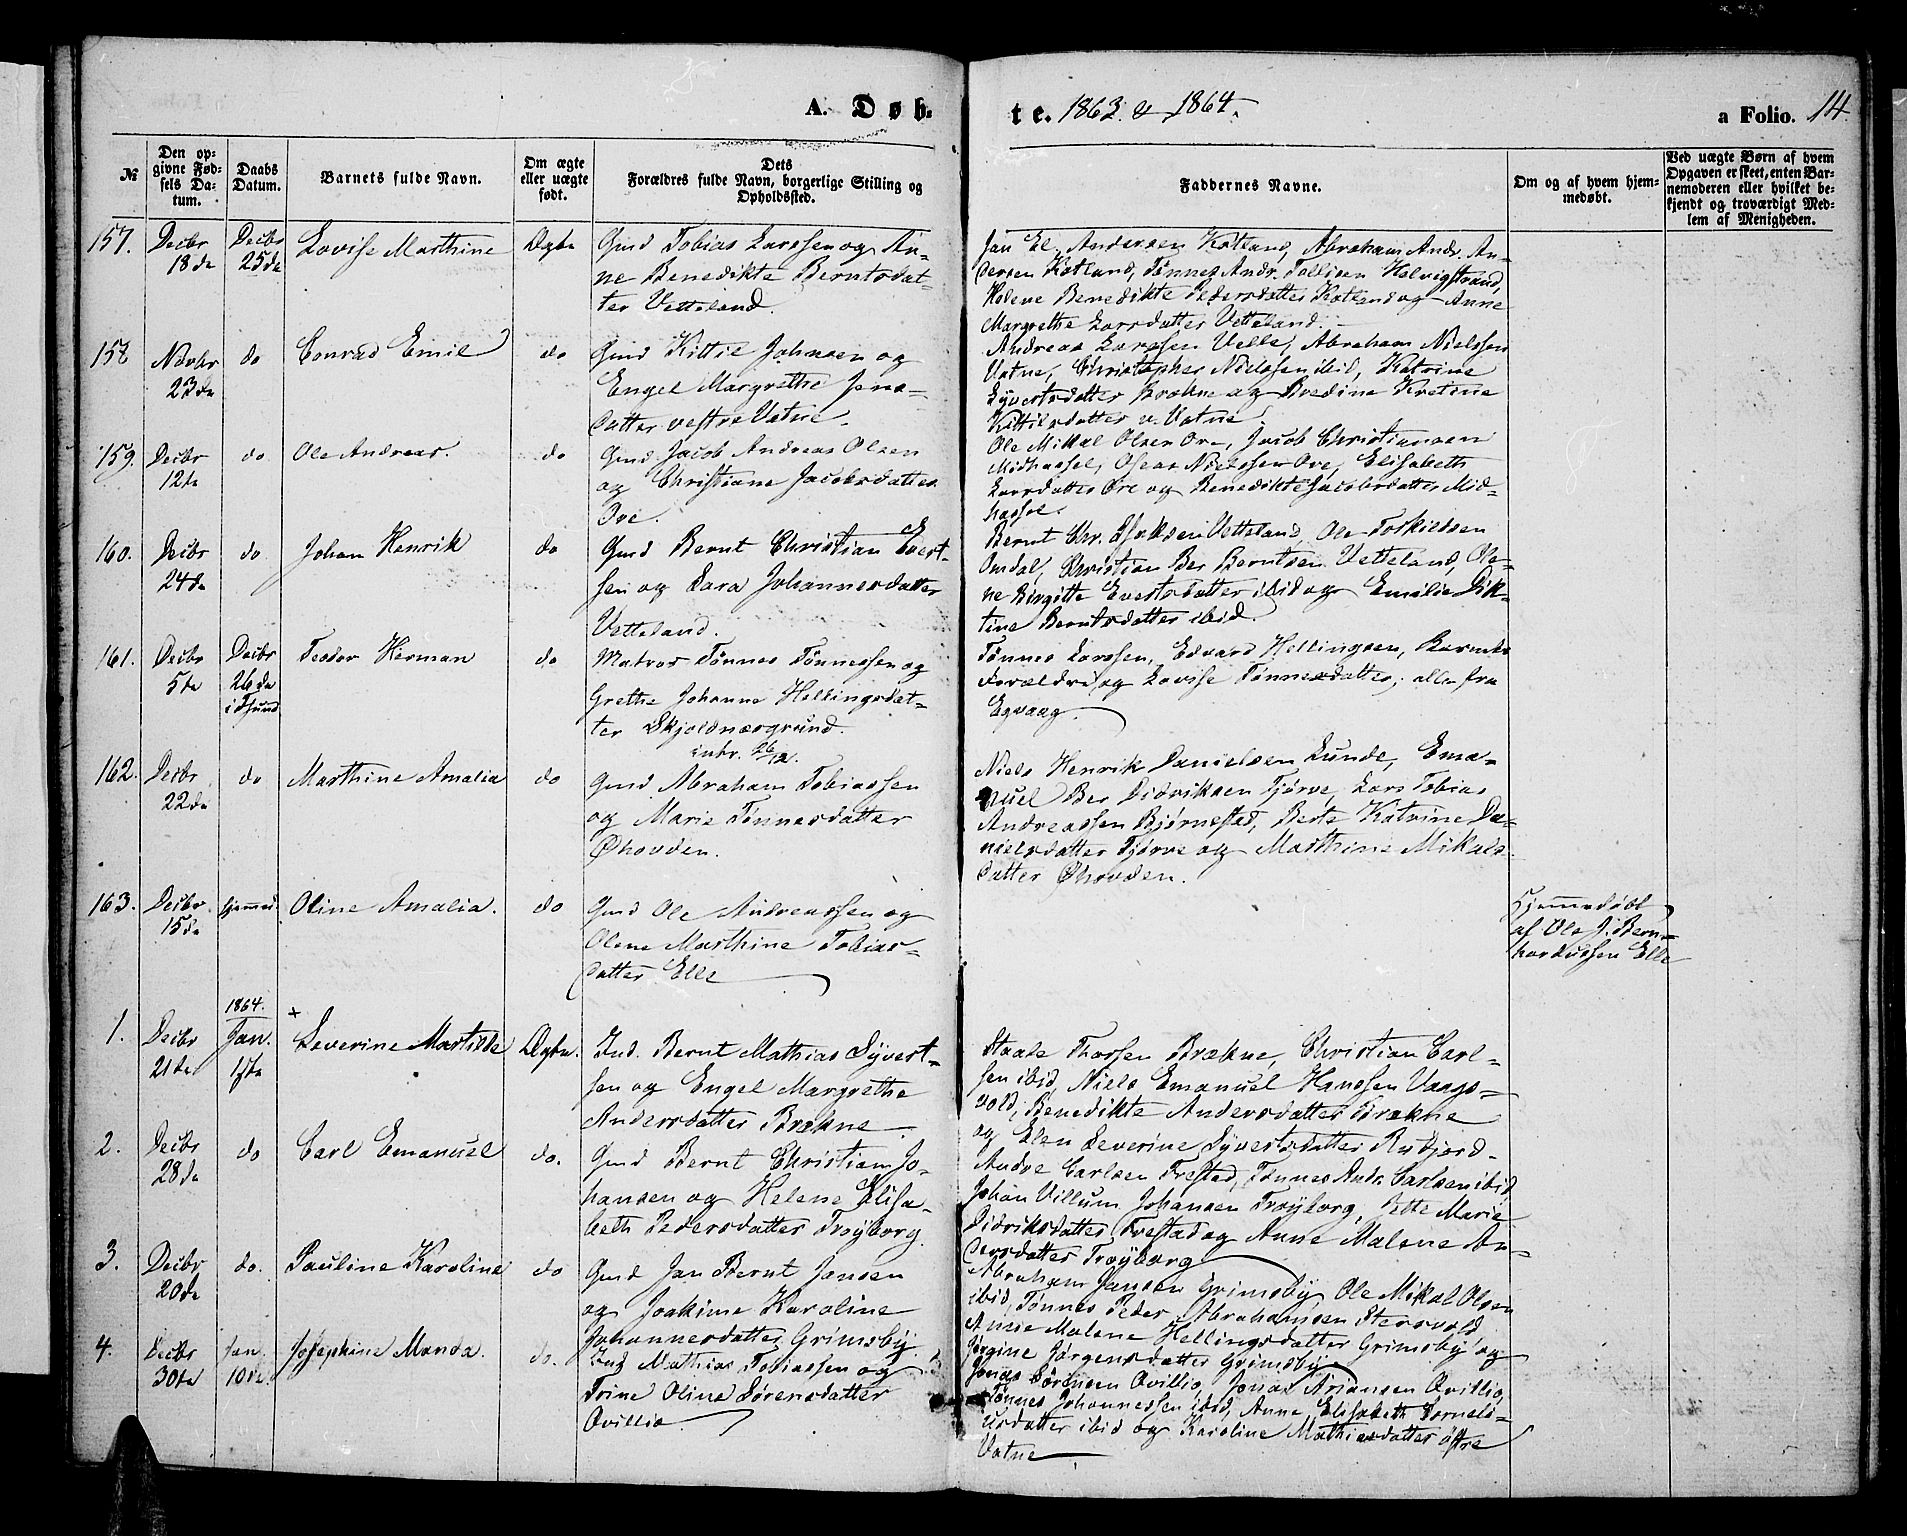 A. Døb-
te. 1863 & 1864.
a Folio. 14
№
Den op-
givne Fød-
sels Da-
tum.
Daabs
Datum.
Barnets fulde Navn.
Om ægte
eller uægte
født.
Dets
Forældres fulde Navn, borgerlige Stilling og
Opholdssted.
Faddernes Navne.
Om og af hvem hjem-
medøbt.
Ved uægte Børn af hvem
Opgaven er skeet, enten Bar-
nemoderen eller hvilket be-
kjendt og troværdigt Med-
lem af Menigheden.
157. Decbr 18de
Decbr 25de
Lovise Marthine
Ægte
Gmd Tobias Larssen og An-
ne Benedikte Berntsdat-
ter Vetteland.
Jan El. Andersen Kotland, Abraham Andr. An-
dersen Kotland, Tønnes Andr. Tollisen Helvigstrand,
Helene Benedikte Pedersdatter Kotland og Anne
Margrethe Larsdatter Vetteland.
158 Novbr 23de
do
Conrad Emil
do
Gmd Kittil Johnsen og
Engel Margrethe Jens-
datter vestre Vatne.
Andreas Larssen Velle, Abraham Nielssen
Vatne, Christopher Nielssen ibid, Katrine
Syvertsdatter Brækne og Bredine Kristine
Kittilsdatter v. Vatne.
159. Decbr 12te
do
Ole Andreas.
do
Gmd. Jacob Andreas Olsen
og Christiane Jacobsdatter
Ore.
Ole Mikal Olsen Ore, Jacob Christiansen
Midhassel, Oseas Nielssen Ore, Elisabeth
Larsdatter Ore og Benedikte Jacobsdatter Mid-
hassel.
160. Decbr 24de
do
Johan Henrik
do
Gmd Bernt Christian Evert-
sen og Sara Johannesdatter
Vetteland.
Bernt Chr. Vetteland, Ole Torkildsen
Omdal, Christian Ber Berntsen Vetteland, Ole-
ne Birgitte Evertsdatter ibid og Emilie Dik-
tine Berntsdatter ibid.
161. Decbr 5te
Decbr
26de
Teodor Herman
do
Matros Tønnes Tønnessen og
Grethe Johanne Hellingsdat-
ter Skjoldnæsgrund.
intr. 26/12.
Tønnes Larssen, Edvard Hellingsen, Barnets
Forældre og Lovise Tønnesdatter, alle fra
Egvaag.
162. Decbr 22de
do
Marthine Amalia
do
Gmd Abraham Tobiassen
og Marie Tønnesdatter
Øhovden.
Niels Henrik Danielsen Lunde, Ema-
nuel Ber Didriksen Tjørve, Lars Tobias
Andreassen Bjørnestad, Berte Katrine Da-
nielsdatter Tjørve og Marthine Mikals-
datter Øhovden.
163. Decbr 15de
hjemmed.
Oline Amalia.
do
Gmd Ole Andreassen og
Olene Marthine Tobias-
datter Elle
Hjemmedøbt
af Ole J. Bern-
hardussen Elle
1864.
1. Decbr 21de
Jan. 1ste
Severine Martilde
Ægte.
Ind. Bernt Mathias Syvert-
sen og Engel Margrethe
Andersdatter Brækne.
Staale Thorsen Brækne, Christian Carl-
sen ibid, Niels Emanuel Hanssen Vaags-
vold, Benedikte Andersdatter Brækne
og Elen Severine Syvertsdatter Røfjord.
2. Decbr 28de
do
Carl Emanuel
do.
Gmd Bernt Christian Jo-
hansen og Helene Elisa-
beth Pedersdatter Trøyborg.
Andre Carlsen Frestad, Tønnes Andr. Carlsen ibid
Johan Villum Johansen Trøyborg, Jette Marie
Didriksdatter Frestad og Anne Malene An-
dersdatter Trøyborg
3. Decbr 20de
do.
Pauline Karoline
do
Gmd Jan Bernt Jansen
og Joakime Karoline
Johannesdatter Grimsby.
Abraham Jansen Grimsby, Ole Mikal Olsen
ibid, Tønnes Peder Abrahamsen Stersvold
Anne Malene Hellingsdatter Grimsby og
Jørgine Jørgensdatter Grimsby.
4. Decbr 30te
Jan. 10de
Josephine Manda.
do.
Ind Mathias Tobiassen og
Trine Oline Sørensdatter
Qvillio.
Jonas Sørensen Qvillio, Jonas Ariansen Qvillio,
Tønnes Johannessen ibid, Anne Elisabeth Corneli-
usdatter ibid og Karoline Mathiasdatter østre
Vatne